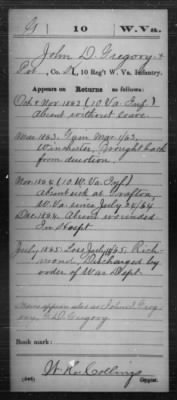 G | 10 | W.Va.
John D. Gregory
Pvt., Co. K, 10 Reg't W. Va. Infantry.
Appears on Returns as follows:
Oct & Nov 1862 (10 W. Va. Inf.)
Absent without leave
Mar. 1863. Gain Mar 1/63,
Winchester, Brought back
from desertion.
Nov. 1864 (10 W. Va Inf)
Absent sick at Grafton,
W. Va. since July 24/64
Dec. 1864. Absent wounded
In Hospt
July 1865. Loss July /65. Rich
mond. Discharged by
order of War Dept.
Name appears also as John I. Greg
ory, G. D. Gregory
Book mark:
Copyist.